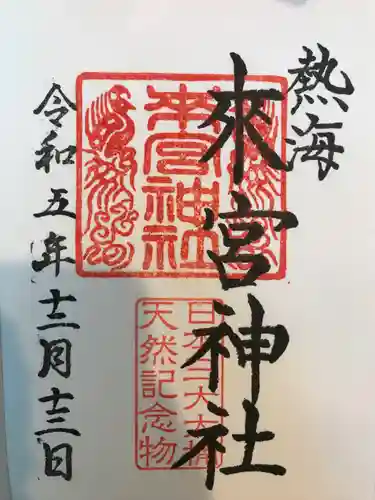 熱海
來宮神社
令和五年十二月十三日
來宮神社
日本三大大楠
天然記念物